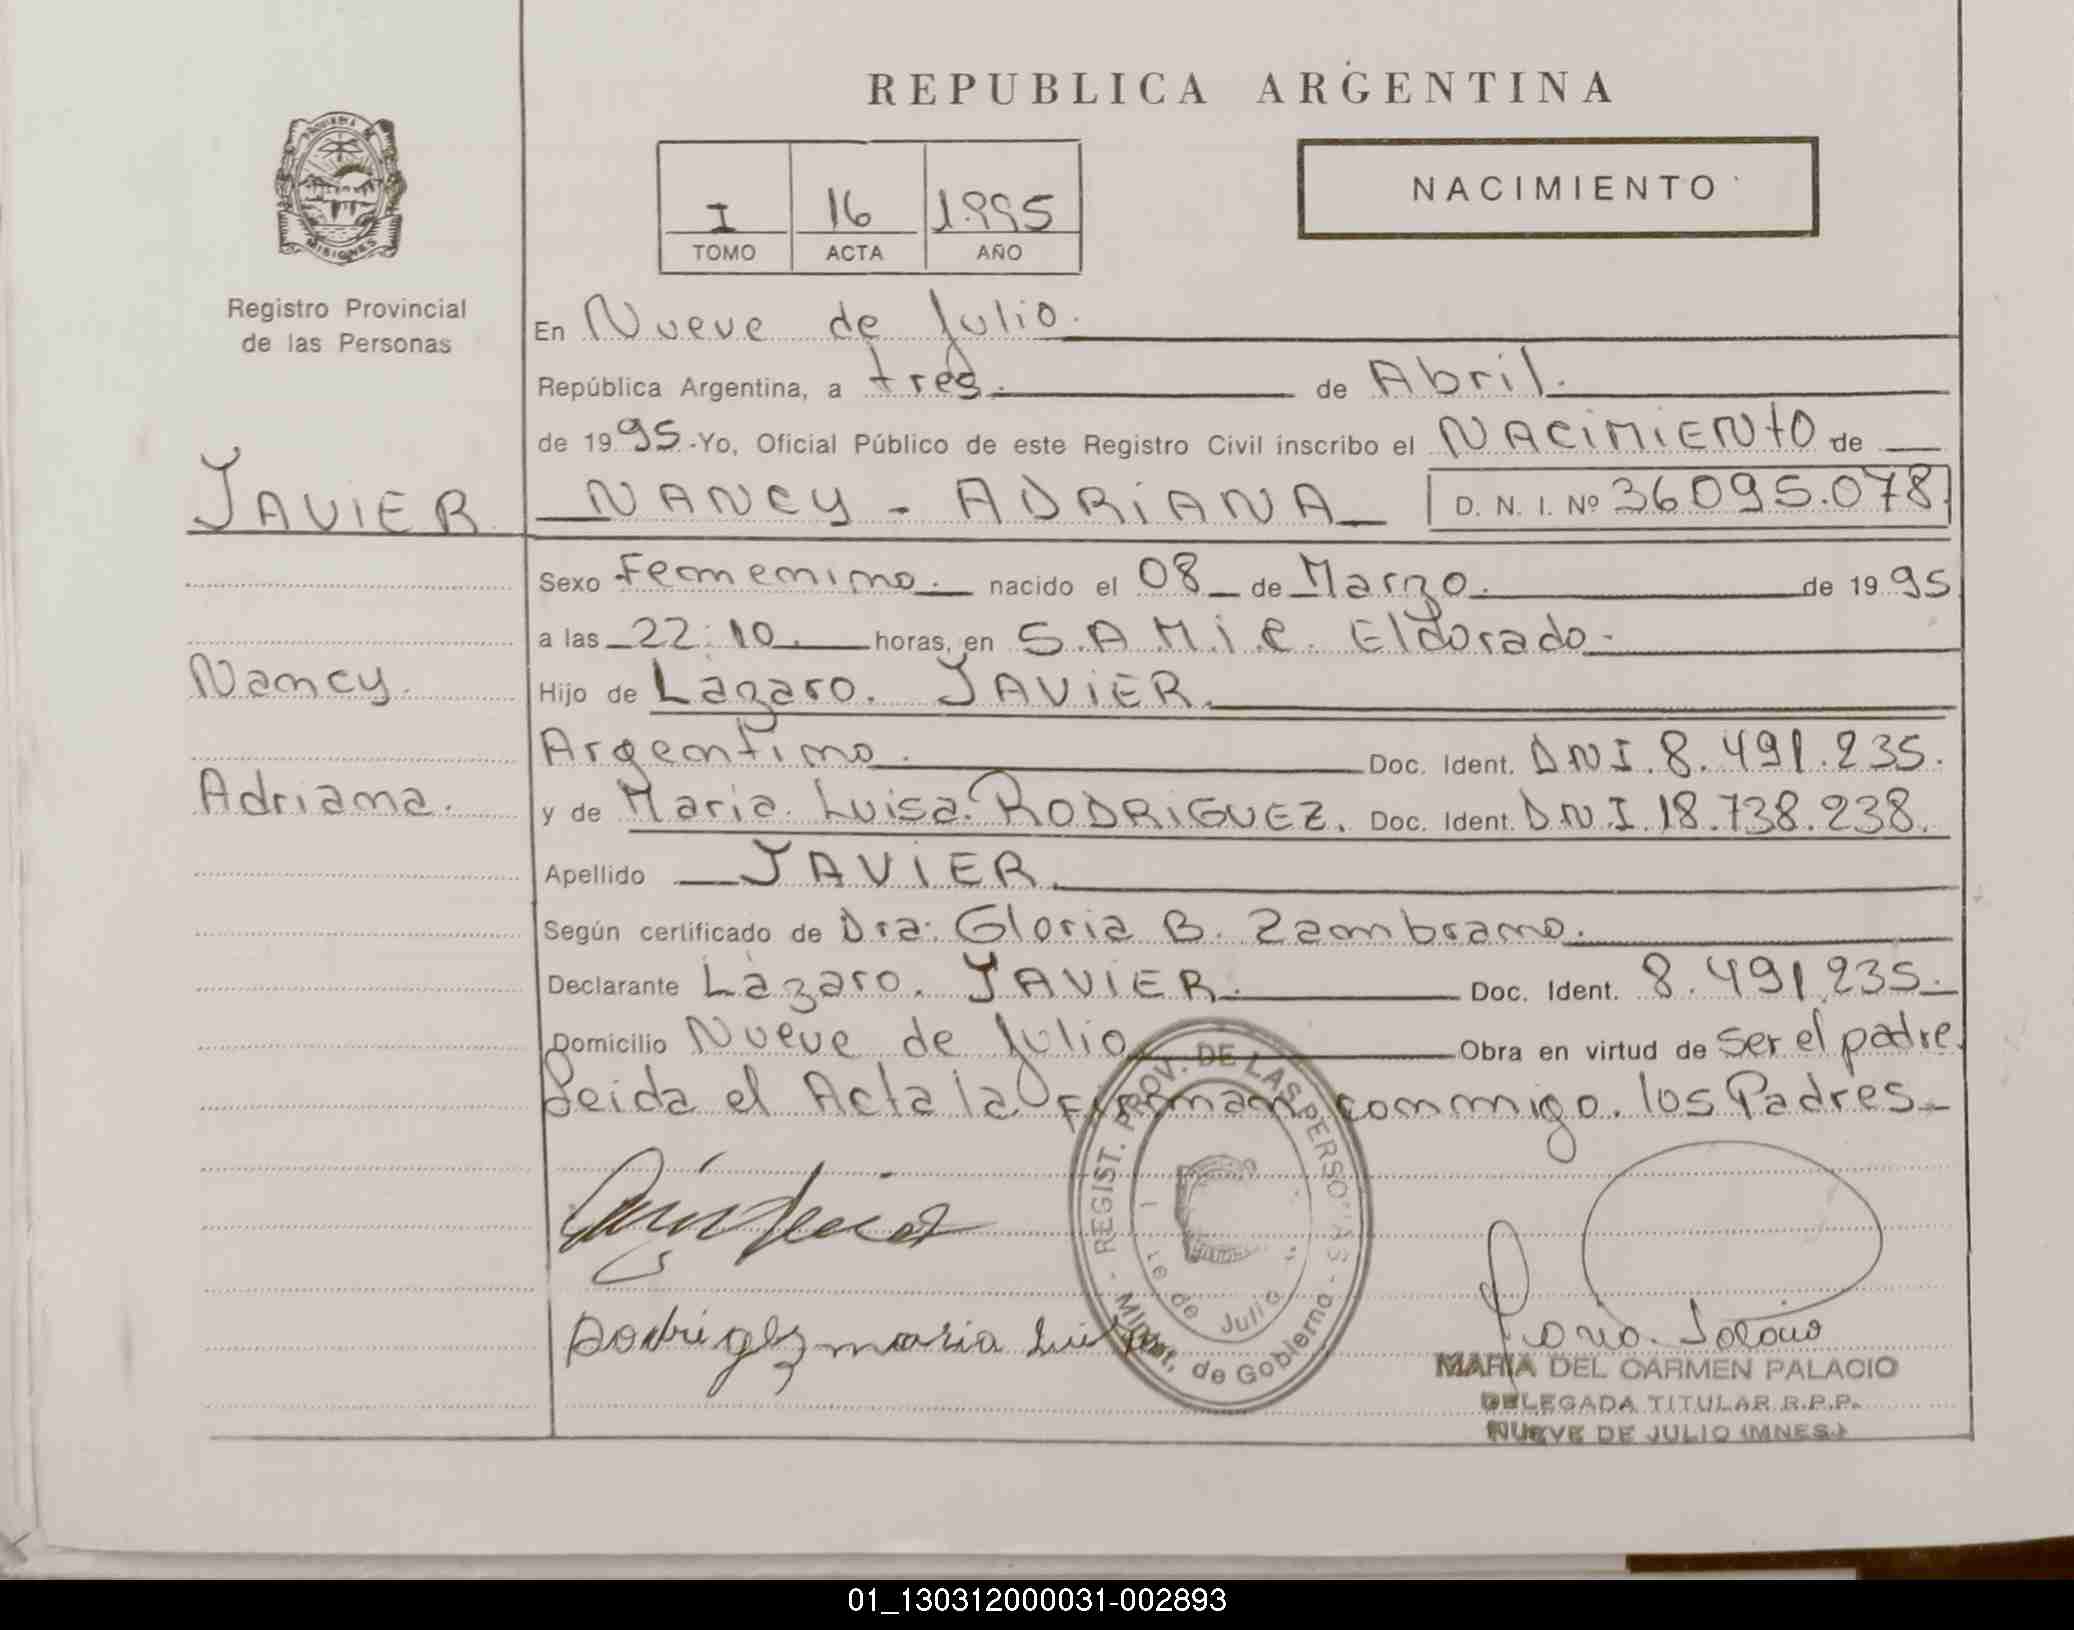 REPUBLICA ARGENTINA
PROVINCIA DE MISIONES
Registro Provincial
de las Personas
I 16 1995
TOMO ACTA AÑO
NACIMIENTO
En Nueve de Julio.
República Argentina, a tres. de Abril.
de 1995.-Yo, Oficial Público de este Registro Civil inscribo el NACIMIENTO de
JAVIER NANCY - ADRIANA D. N. I. Nº 36.095.078.
Sexo Femenino. nacido el 08 de Marzo. de 1995
a las 22:10. horas, en S.A.M.i.C. Eldorado.
Nancy. Hijo de Lázaro. JAVIER.
Argentino. Doc. Ident. DNI.8.491.235.
Adriana. y de Maria. Luisa. RODRIGUEZ. Doc. Ident. D.N.I.18.738.238.
Apellido JAVIER.
Según certificado de Dra: Gloria B. Zambrano.
Declarante Lázaro. JAVIER. Doc. Ident. 8.491.235.
Domicilio Nueve de Julio Obra en virtud de ser el padre.
Leida el Acta la Firman conmigo. los Padres
REGIST. PROV. DE LAS PERSONAS - Minist. de Gobierno -
de Julio
Rodriguez maria Luisa
MARIA DEL CARMEN PALACIO
DELEGADA TITULAR R.P.P.
NUEVE DE JULIO (MNES.)
01_130312000031-002893